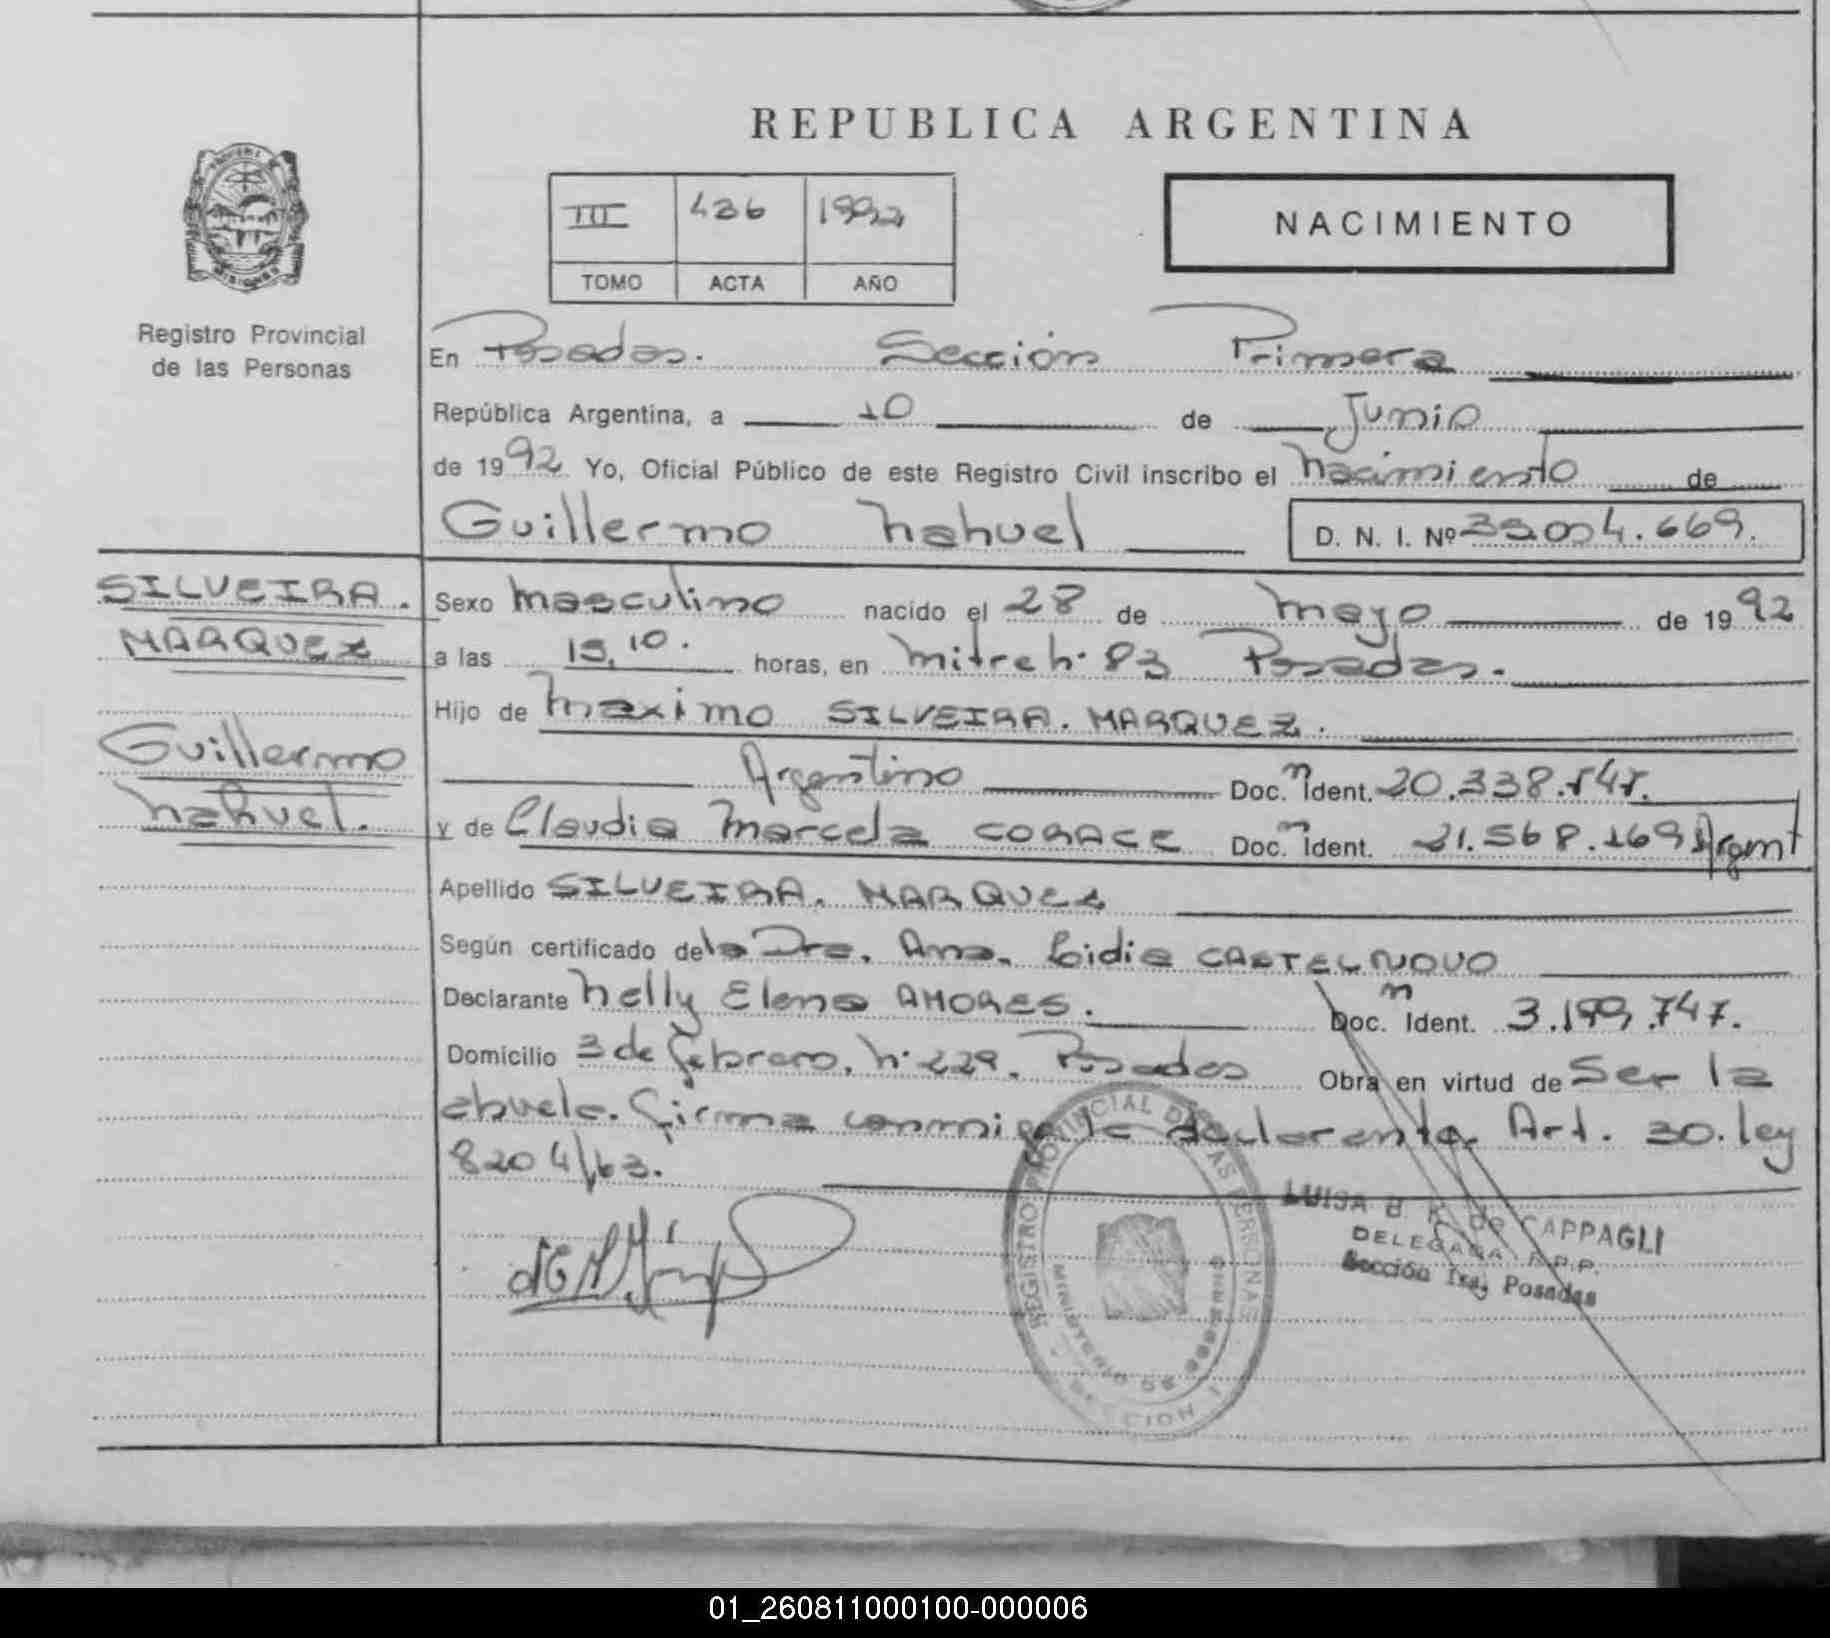 REPUBLICA ARGENTINA
III 436 1992
TOMO ACTA AÑO
NACIMIENTO
Registro Provincial
de las Personas
En Posadas. Sección Primera
República Argentina, a 10 de Junio
de 1992 Yo, Oficial Público de este Registro Civil inscribo el Nacimiento de
Guillermo Nahuel D. N. I. Nº 39.004.669.
SILVEIRA.
MARQUEZ
Guillermo
Nahuel.
Sexo Masculino nacido el 28 de Mayo de 1992
a las 15,10. horas, en Mitre Nº 83 Posadas.
Hijo de Maximo SILVEIRA. MARQUEZ.
Argentino Doc. n Ident. 20.338.747.
y de Claudia Marcela CORACE Doc. n Ident. 21.568.169 Argent
Apellido SILVEIRA. MARQUEZ
Según certificado de la Dra. Ana. Lidia CASTELNOVO
Declarante Nelly Elena AMORES. Doc. n Ident. 3.199.747.
Domicilio 3 de febrero. Nº 229. Posadas Obra en virtud de Ser la
abuela. firma conmigo la declarante. Art. 30. ley
8204/63.
REGISTRO PROVINCIAL DE LAS PERSONAS
MINISTERIO DE GOBIERNO
SECCION 1
LUISA B. K. de CAPPAGLI
DELEGADA R.P.P.
Sección 1ra, Posadas
01_260811000100-000006